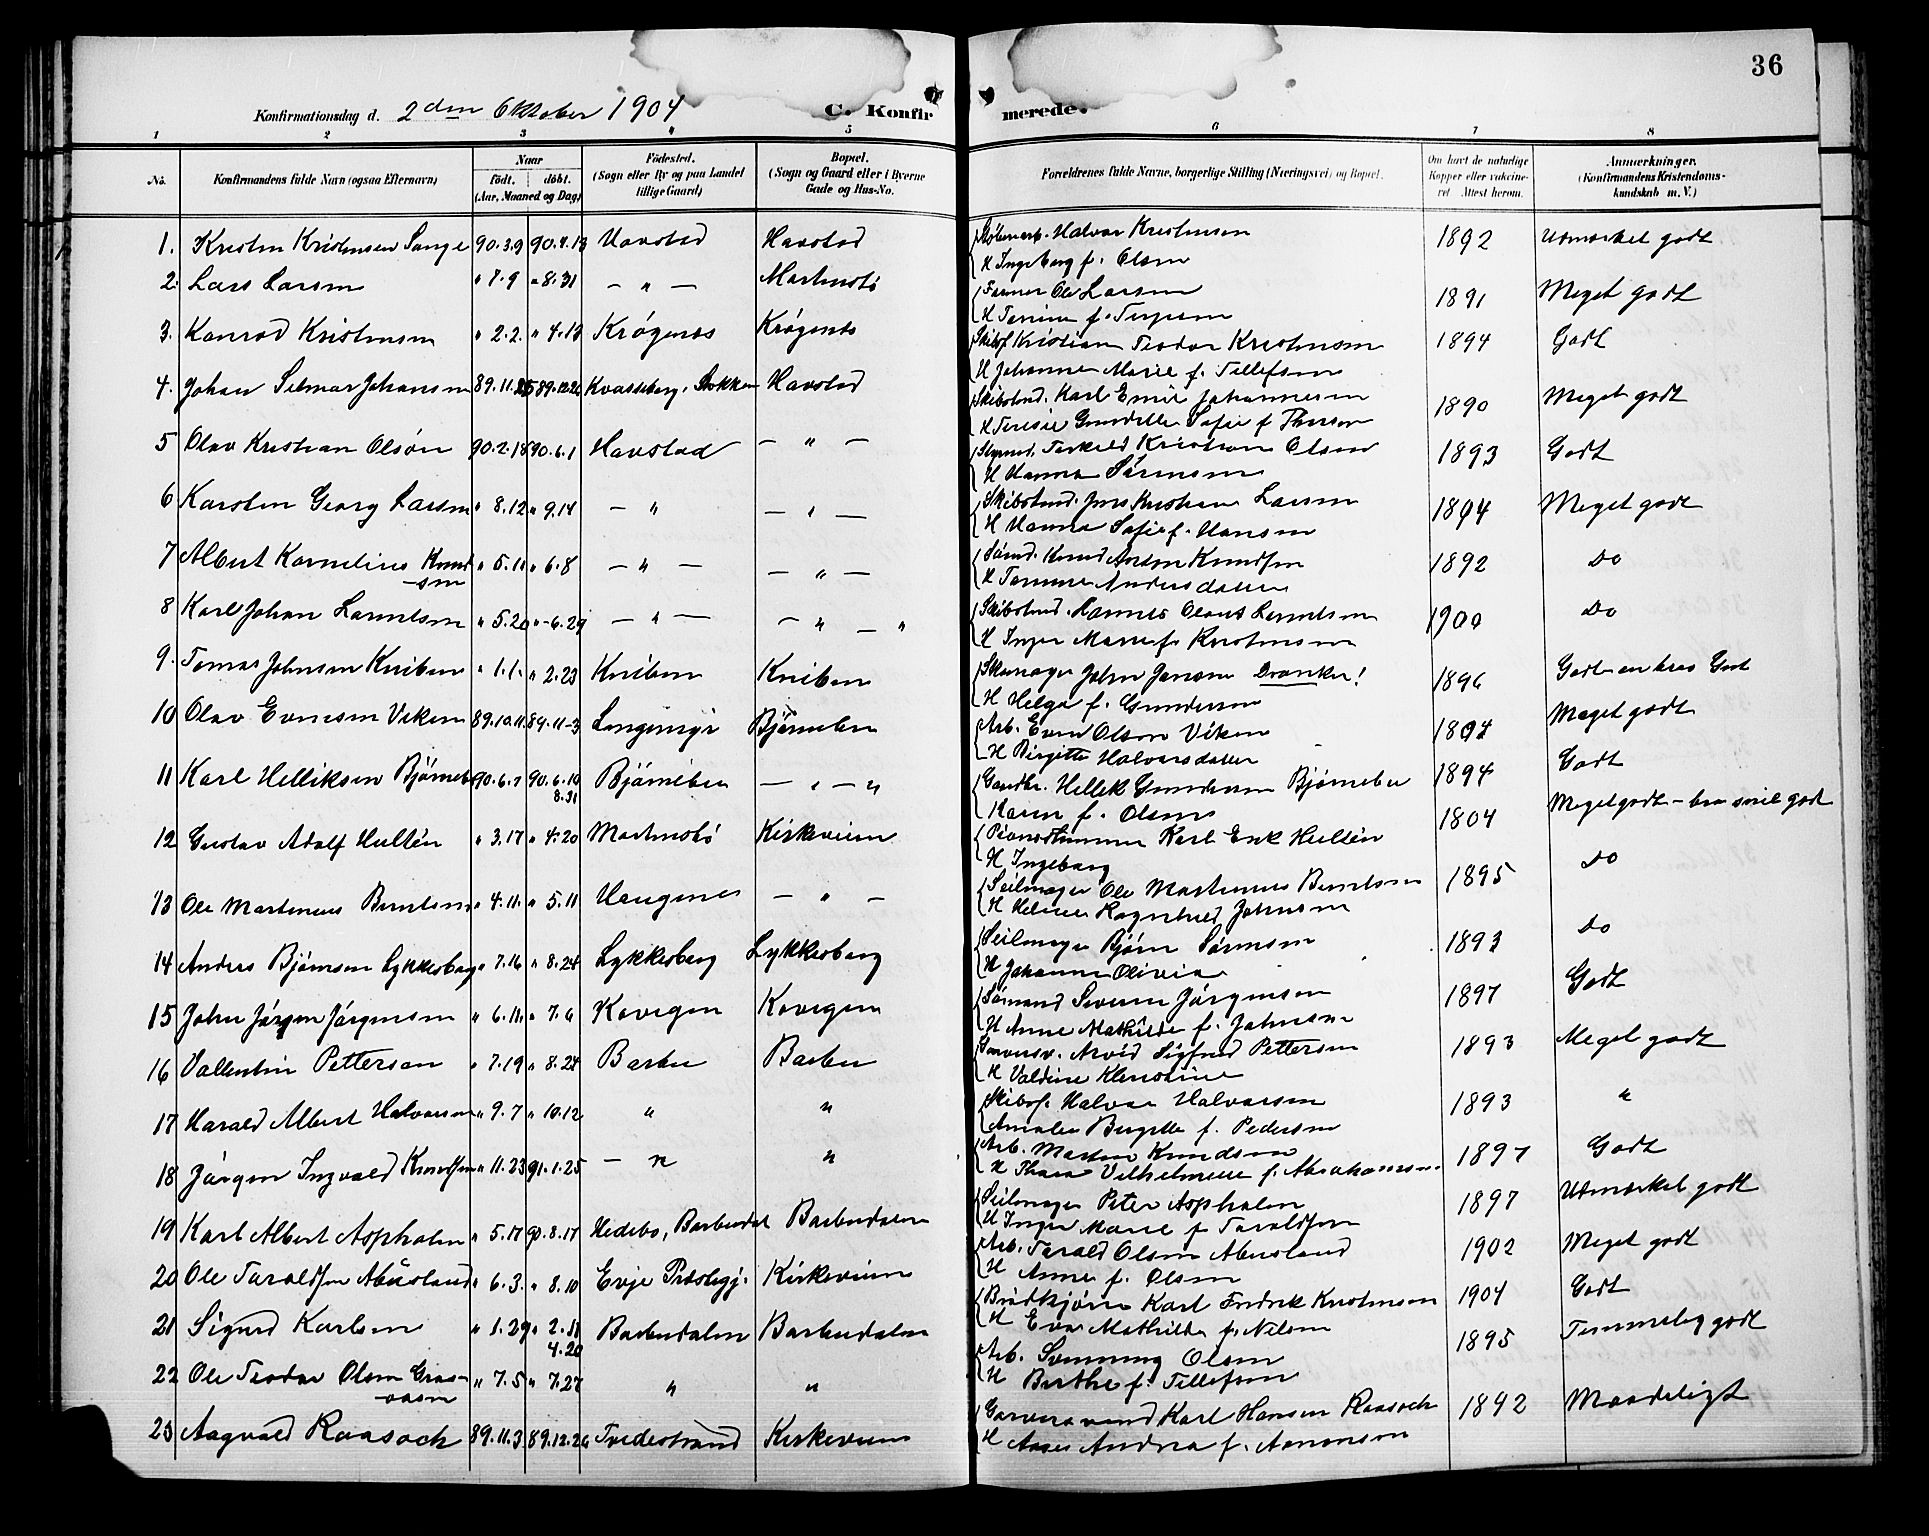 36
Konfirmationsdag d. 2den Oktober 1904
C. Konfir merede.
1 2 3 4 5 6 7 8
No. Konfirmandens fulde Navn (ogsaa Efternavn) Naar født. døbt. (Aar, Maaned og Dag) Fødested. (Sogn eller By og paa Landet tillige Gaard) Bopæl. (Sogn og Gaard eller i Byerne Gade og Hus-No. Forældrenes fulde Navne, borgerlige Stilling (Næringsvei) og Bopæl. Om havt de naturlige Kopper eller vakcineret Attest herom. Anmærkninger. (Konfirmandens Kristendomskundskab m. V.)
1. Kristen Kristensen Lange 90.3.9 90.4.13 Havstad Havstad Halvor Kristensen 1892 Udmærket godt
H Ingeborg f. Olsen
2. Lars Larsen " 7.9 " 8.31 — " — Martensbø Farmer Ole Larsen 1891 Meget godt
H Terine f. Terjesen
3. Konrad Kristensen " 2.2. " 4.13 Krøgenes Krøgenes Skibsf Kristian Teodor Kristensen 1894 Godt
H Johanne Marie f. Tellefsen
4. Johan Selmar Johansen 89.11.25 89.12.26 Kvasseberg, Stokken Havstad Skibstmd. Karl Emil Johannesen 1890 Meget godt
H Teresie Gundelle Sofie f
5 Olav Kristian Olsøn 90.2.18 90.6.1 Havstad — " — Styrmd. Terkild Kristian Olsen 1893 Godt
H Hanna Sørensen
6 Karsten Georg Larsen " 8.12 " 9.14 — " — " — Skibstmd. Jens Kristian Larsen 1894 Meget godt
H Hanna Sofie f. Hansen
7 Albert Kornelius Knudsen " 5.11 " 6.8 — " — — " — Sømd. Knud Anton Knudsen 1892 Do
H Tomine Andersdatter
8 Karl Johan Larentsen " 5.20 " 6.29 — " — — " — " Skibstmd. Hannes Olaus Larentsen 1900 Do
H Inger Marie f. Kristensen
9. Tomas Johnsen Kniben " 1.1. " 2.23 Kniben Kniben Skomager John Jensen Dranker! 1896 Godt en bras Gut
H Helga f. Gundersen
10 Olav Evensen Viken 89.10.11 89.11-3 Longmyr Bjørnebu Arb. Even Olsen Viken 1894 Meget godt
H Birgitte Halvorsdatter
11 Karl Helliksen Bjørnebu 90.6.7 90.6.10 8.31 Bjørnebu — " — " Gaardbr. Hellik Gundersen Bjørnebu 1894 Godt
Karen f. Olsen
12 Gustav Adolf Hultén " 3.17 " 4.20 Martensbø Kirkeveien Pianostemmer Karl Erik Hultén 1804 Meget godt – bra snil gut
H Ingeborg
13 Ole Martinius Berntsen " 4.11. " 5.11 Haugenes — " — Seilmager Ole Martinius Berntsen 1895 Do
H Helene Ragnhild Johnsen
14 Anders Bjørnsen Lykkesborg " 7.16 " 8.24 Lykkesborg Lykkesborg Seilmager Bjørn Sørensen 1893 Do
H Johanne Olivia
15 John Jørgen Jørgensen " 6.11 " 7.6 Kovegen Kovegen Sømand Severin Jørgensen 1897 Godt
H Anne Mathilde f. Johnsen
16 Vallentin Petterson " 7.19 " 8.24 Barbu Barbu Garversv. Arvid Sigfred Petterson 1893 Meget godt
H Valdine Klenstine
17 Harald Albert Halvorsen " 9.7 " 10.12 " " Skibsf. Halvor Halvorsen 1893 "
Amalie Birgitte f. Pedersen
18 Jørgen Ingvald Knudsen " 11.23 91.1.25 — " " Arb. Morten Knudsen 1897 Godt
H Thora Vilhelmine f. Abrahamsen
19 Karl Albert Aspholm " 5.17 90.8.17 Hedebo, Barbudal Barbudalen Seilmager Peter Aspholm 1897 Udmærket godt
H Inger Marie f Taraldsen
20 Ole Taraldsen Abusland " 6.3. " 8.10 Evje Præstegj. Kirkeveien Arb. Tarald Olsen Abusland 1902 Meget godt
H Anne f. Olsen
21 Sigurd Karlsen " 1.29 " 2.11 4.20 Barbudalen Barbudalen Brødkjører Karl Fredrik Kristensen 1904 Godt
H Eva Mathilde f. Nilsen
22 Ole Teodor Olsen " 7.5 " 7.27 " " Arb. Olsen 1895 Temmelig godt
H Berthe f. Tellefsen
23 Aagvald Raasoch 89.11.3 89.12.26 Tvedestrand Kirkeveien Garversvend Karl Hansen Raasoch 1892 Maadeligt
H Aase Andrea f. Aanonsen